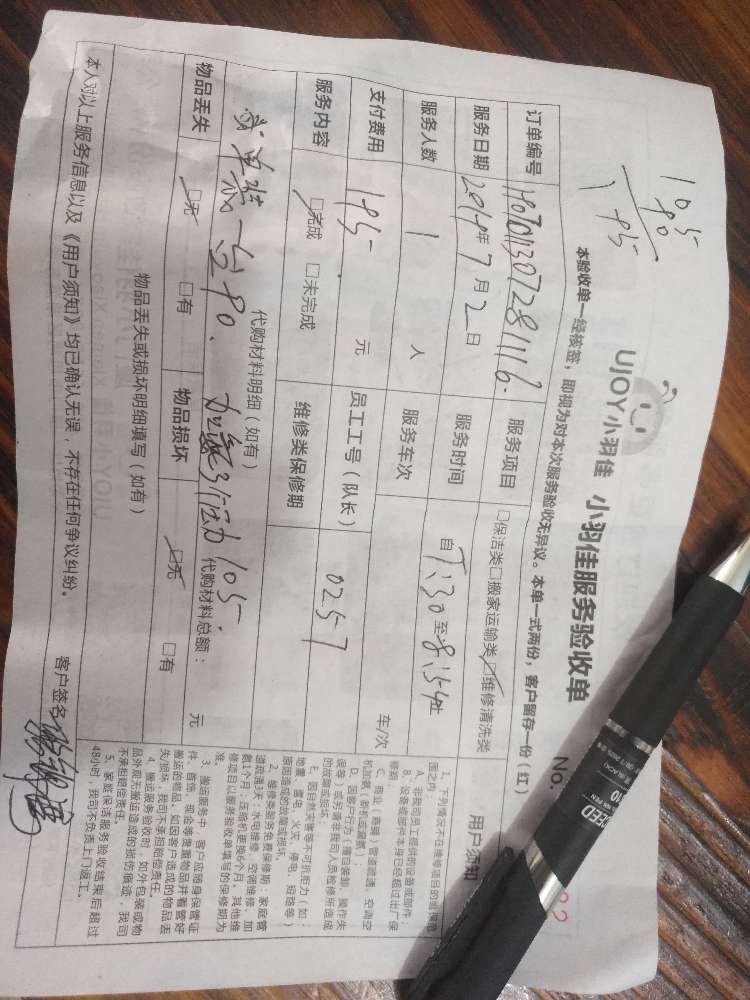 105
90
195
UJOY小羽佳 小羽佳服务验收单
No.
本验收单一经核签，即视为对本次服务验收无异议。本单一式两份，客户留存一份（红）
订单编号
服务项目 □保洁类□搬家运输类☑维修清洗类
服务日期 2019年7月2日 服务时间 自7:30至8:54止
服务人数 1 人 服务车次 车/次
支付费用 195 元 员工工号（队长） 0257
服务内容 ☑完成 □未完成 维修类保修期
代购材料明细（如有）
一台90、加氟3个压力105.
代购材料总额： 元
物品丢失 ☑无 □有 物品损坏 ☑无 □有
物品丢失或损坏明细填写（如有）
本人对以上服务信息以及《用户须知》均已确认无误，不存在任何争议纠纷。
客户签名
用户须知
1、下列情况不在维修项目的保修范围之内：
A、非我司员工提供的设备或部件；
B、设备或部件本身已经超过出厂保修期；
C、商业（商铺）管道疏通、空调空机加氟（新机除漏氟）；
D、因客户行为（擅自装卸、操作失误等）或另请非我司人员检修所造成的故障或损坏；
E、因自然灾害等不可抗拒力（如：地震、雷电、火灾、停电、短路等）原因造成的故障或损坏。
2、维修类服务免费保修期：家庭管道疏通3天；水电维修、空调维修、加氟1个月；压缩机更换6个月。其他维修项目以服务验收单填写的保修期为准。
3、搬运服务中，客户应随身保管证件、首饰、现金等贵重物品并看管好搬运的物品，如因客户造成的物品丢失/损坏，我司不承担赔偿责任。
4、搬运服务验收时，如外包装或物品外观无搬运造成的损伤痕迹，我司不承担赔偿责任。
5、家庭保洁服务验收结束后超过48小时，我司不负责上门返工。